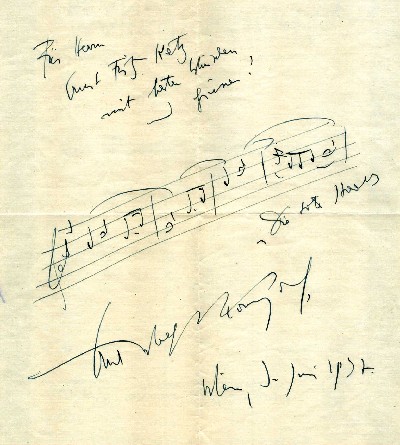 Für Herrn
Ernst Fritz
mit besten Wünschen
"Die tote Stadt"
Erich Wolfgang Korngold
Wien, 3. Juni 1937.